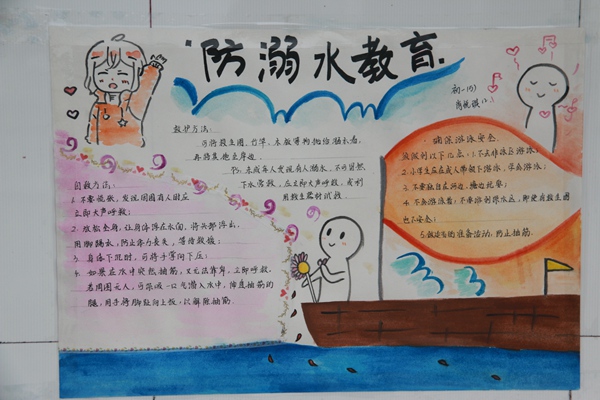 防溺水教育
初一(9)
救护方法:
①将救生圈、竹竿、木板等物抛给溺水者,
再将其拖至岸边.
②未成年人发现有人溺水,不可贸然
下水营救,应立即大声呼救,或利
用救生器材试救.
自救方法:
1. 不要慌张,发现周围有人时应
立即大声呼救;
2. 放松全身,让身体浮在水面,将头部浮出,
用脚踢水,防止体力丧失,等待救援;
3. 身体下沉时,可将手掌向下压;
4. 如果在水中突然抽筋,又无法靠岸,立即呼救.
若周围无人,可深吸一口气潜入水中,伸直抽筋的
腿,用手将脚趾向上扳,以解除抽筋.
确保游泳安全.
应做到以下几点:1.不去非泳区游泳;
2.小学生应在成人带领下游泳,学会游泳;
3.不要独自在河边、
4.不会游泳者,不要游到深水区,即使带救生圈
也不安全;
5.做适当的准备活动,防止抽筋.